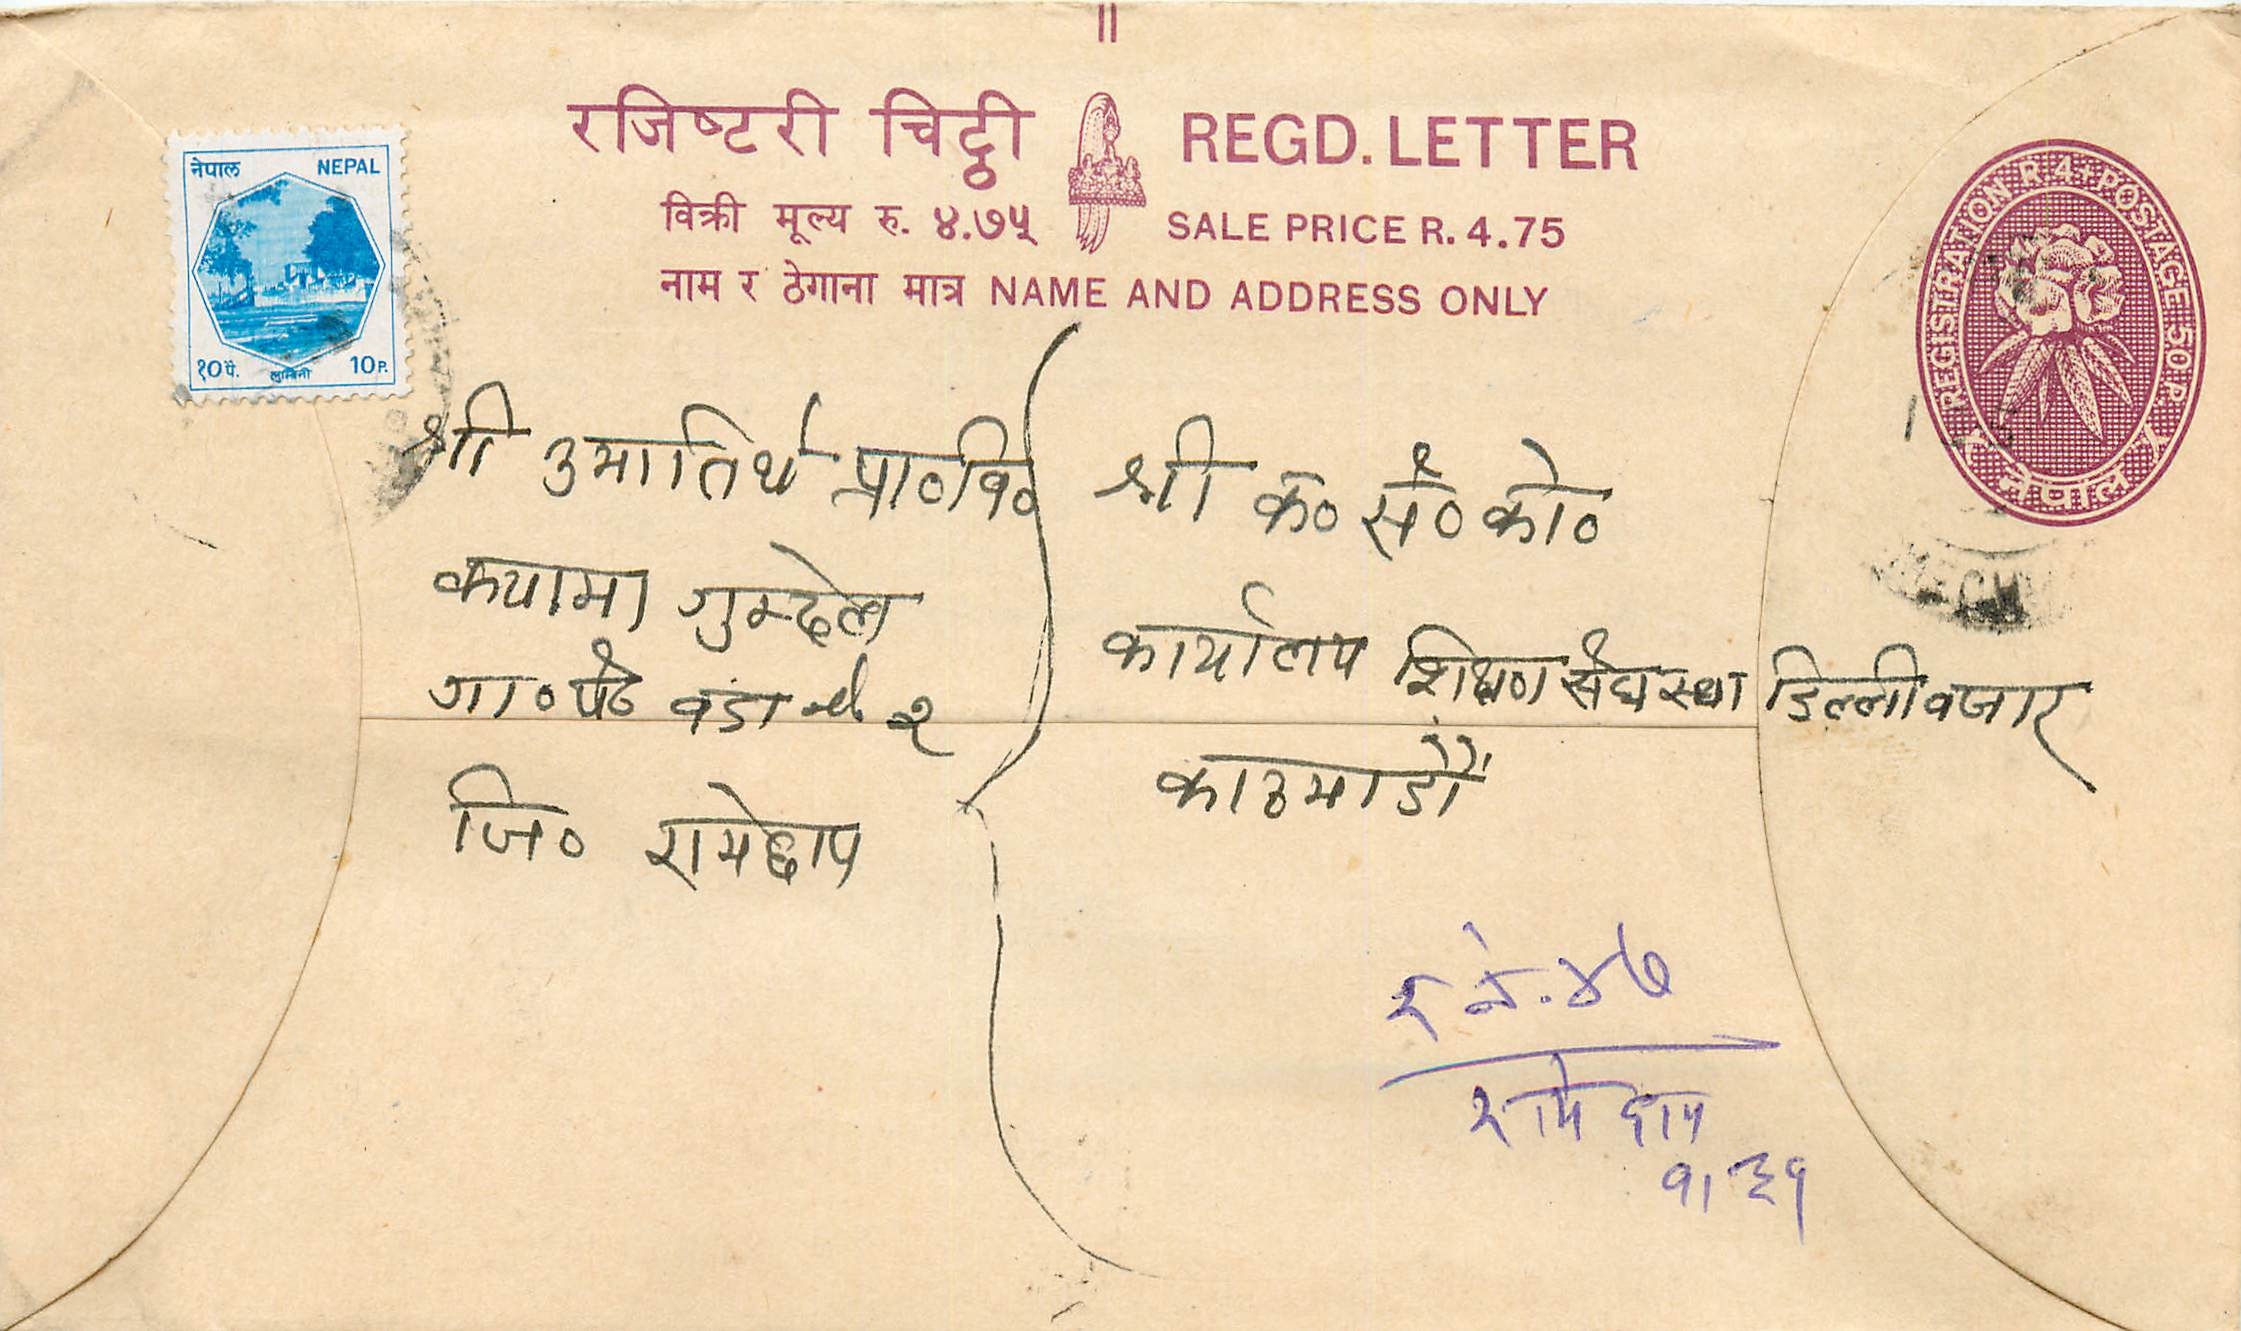 रजिष्टरी चिट्ठी REGD. LETTER
विक्री मूल्य रु. ४.७५ SALE PRICE R. 4.75
नाम र ठेगाना मात्र NAME AND ADDRESS ONLY
नेपाल NEPAL
१० पै. लुम्बिनी 10 P.
REGISTRATION R 4 + POSTAGE 50 P.
नेपाल
श्री उमातिर्थ प्रा०वि०
गा०पं० वडा नं २
जि० रामेछाप
श्री क० सं० को०
कार्यालय शिक्षण डिल्लीवजार
काठमाडौं
र नं. ४७
रामेछाप